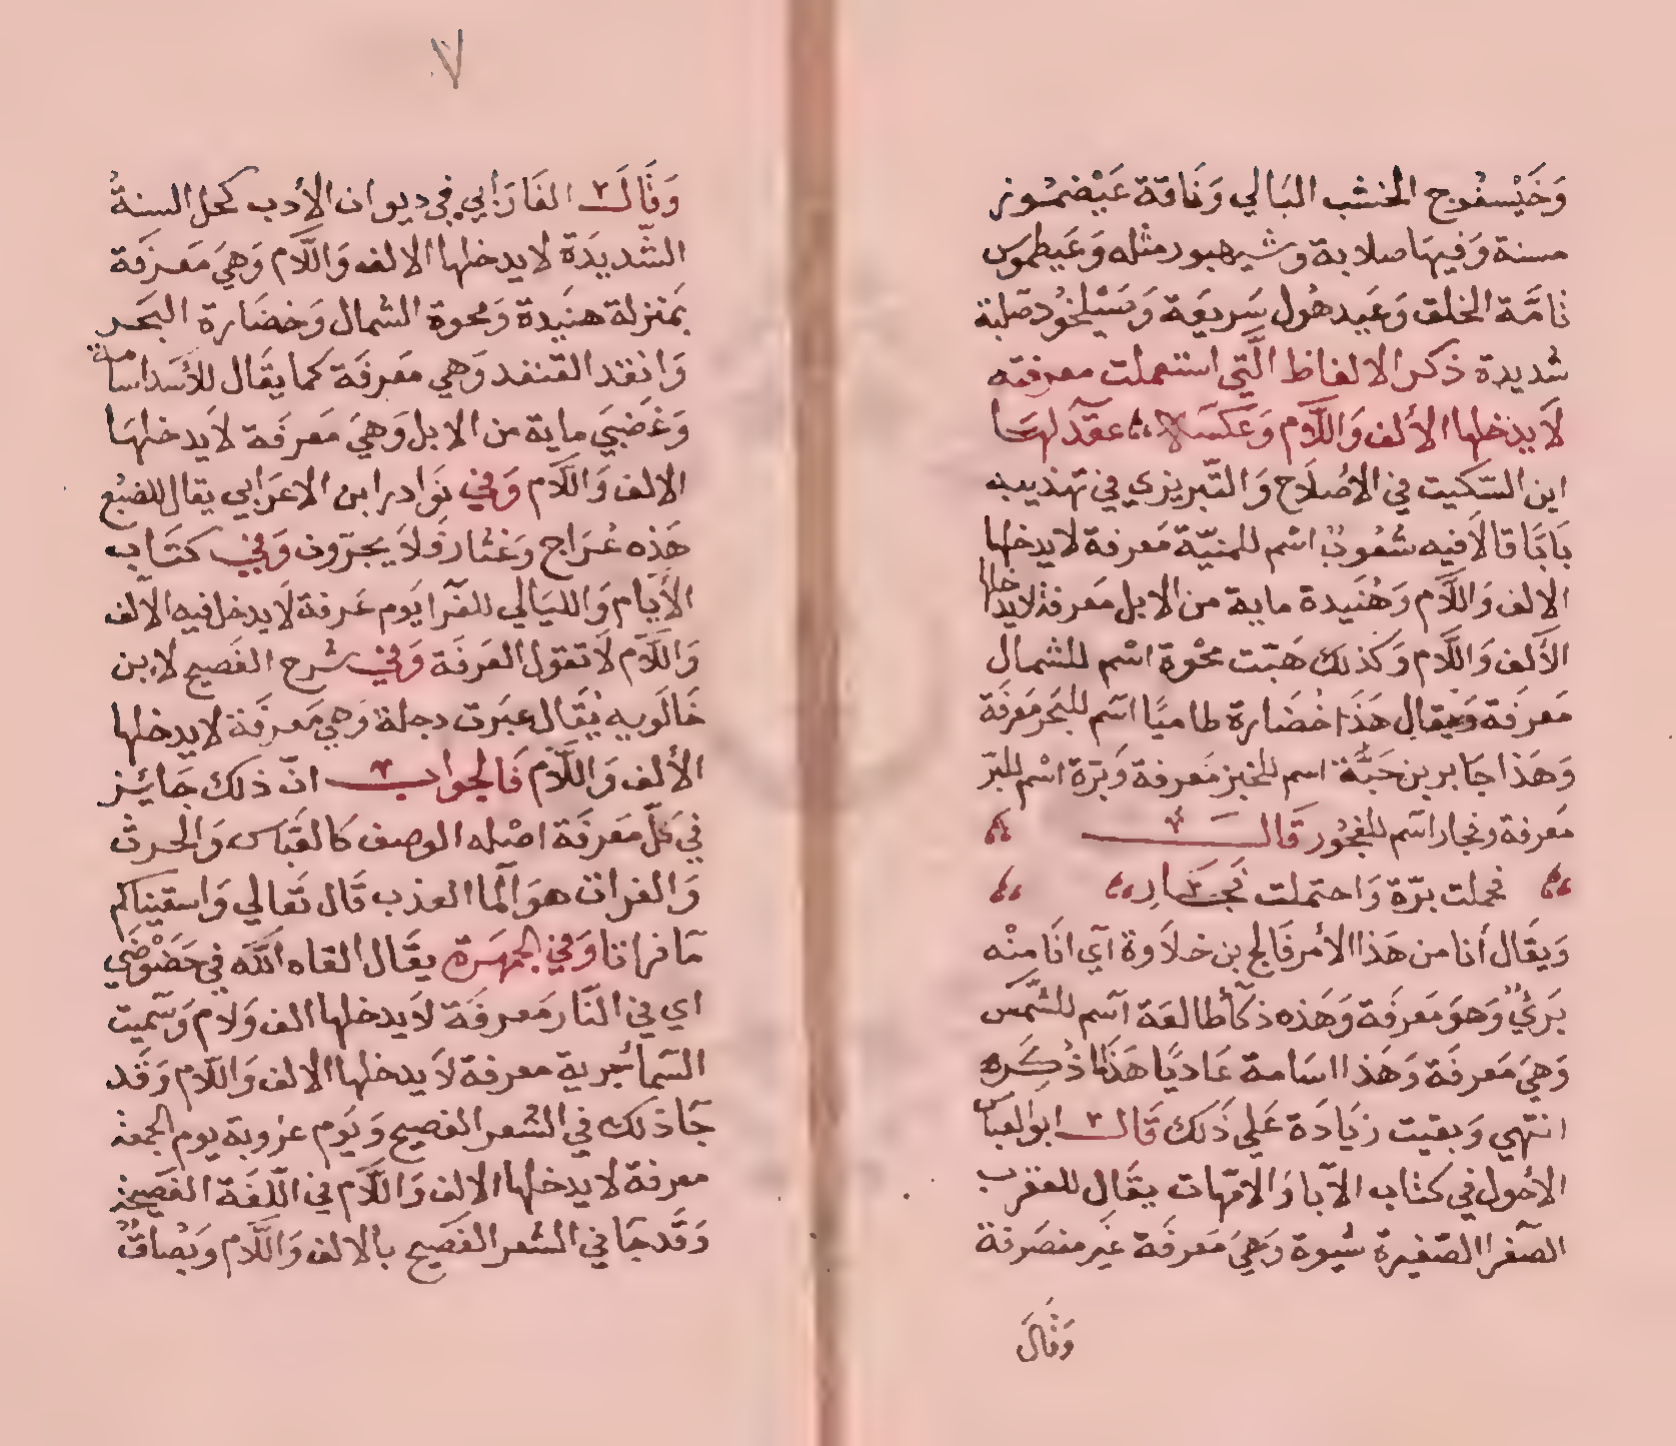 وَخَيْسفُوج الخشب البَالي وَنَاقة عَيْضمُوز
مسنة وَفيهَا صلابة وشيهبور مثله وَعَيطموس
تامَّة الخلق وَعَيدهُول سَريعَة وَسَيْلخُود صَلبة
شديدة ذكر الالفاظ الَّتي استعملت معرفته
لاَ يدخلها الألف وَاللَّام وَعَكسَه عقد لهَا
ابن السَّكيت في الاصْلَاح وَالتّبريزي في تهَذيبه
بَابًا قالاَ فيه شعُوبُ اسْم للمنيّة مَعرفة لا يدخلها
الالف وَاللَّام وَهُنَيدة ماية من الابل مَعرفة لا يدخلها
الألف وَاللَّام وَكذلك هَبّت مَحْوة اسْم للشمال
مَعرفَة وَيقال هَذَا خُضَارة طاميًا اسَم للبَحر مَعرفَة
وَهَذا جَابر بن حَبَّة اسم للخبز مَعرفة وَبَرّة اسْم للبّر
مَعرفة وفجار اسَم للفجُور قَالَ
فحملت برّة وَاحتملت فجَار
وَيقَال أنا من هَذا الأمر فَالج بن خلاَوة آي انَا منْه
بَريٌ وَهوَ مَعرفَة وَهَذه ذكآ طالعَة اسَم للشَّمس
وَهيَ مَعرفَة وَهَذا اسَامة عَاديًا هَذَا ذكَره
انتهي وَبقيت زيَادَة عَلي ذَلك قَال ابو العَباس
الأحول في كتاب الآبا وَالامّهات يقَال للعقرب
الصَفرا الصّغيرة شيوة وَهيَ مَعرفَة غَير منصَرفة
وَقَال
٧
وَقَالَ الفَارَابي في ديوان الأدب كحل السنةُ
الشّديدَة لا يدخلها الالف وَاللَّام وَهيَ مَعرفَة
بمَنزلة هنَيدة وَمحوة الشمال وَخضَارة البَحر
وَانقد القنفد وَهي مَعرفَة كمَا يقَال للأسَد اسَامة
وَغَضبَي ماية من الابل وَهيَ مَعرفَة لاَ يدخلهَا
الالف وَاللَّام وَفي نَوادر ابن الاعرَابي يقال للضبُع
هَذه عُرَاج وَعَثار وَلاَ يجرّون وَفي كتَاب
الأيّام وَالليَالي للفَرّا يَوم عَرفة لاَ يدخل فيه الالف
وَاللَّام لاَ تقول العَرفَة وَفي شرح الفَصيح لابن
خَالَويه يُقَال عبَرت دجلة وَهي مَعرفَة لا يدخلها
الألف وَاللَّام فَالجواب انّ ذلك جَايئز
في كلّ مَعرفَة اصْله الوصف كَالعَبّاس وَالحرث
وَالفرات هوَ الَمآ العذب قَال تَعَالي وَاسقيناكم
مآ فراتا وَفي الجمهَرة يقَال القاه اللّه في حَضَوْضَي
اي في النّار مَعرفَة لاَ يدخلها الف وَلام وَسّميت
السّما جربة معرفة لاَ يدخلها الالف وَاللاّم وَقَد
جَآ ذلك في الشعر الفصيح وَيَوم عروبة يوم الجمعة
معرفة لا يدخلها الالف وَاللَّام في اللّغَة الفَصيحة
وَقَد جَا في الشعر الفَصيح بالالف وَاللَّام وَبُصَاقُ